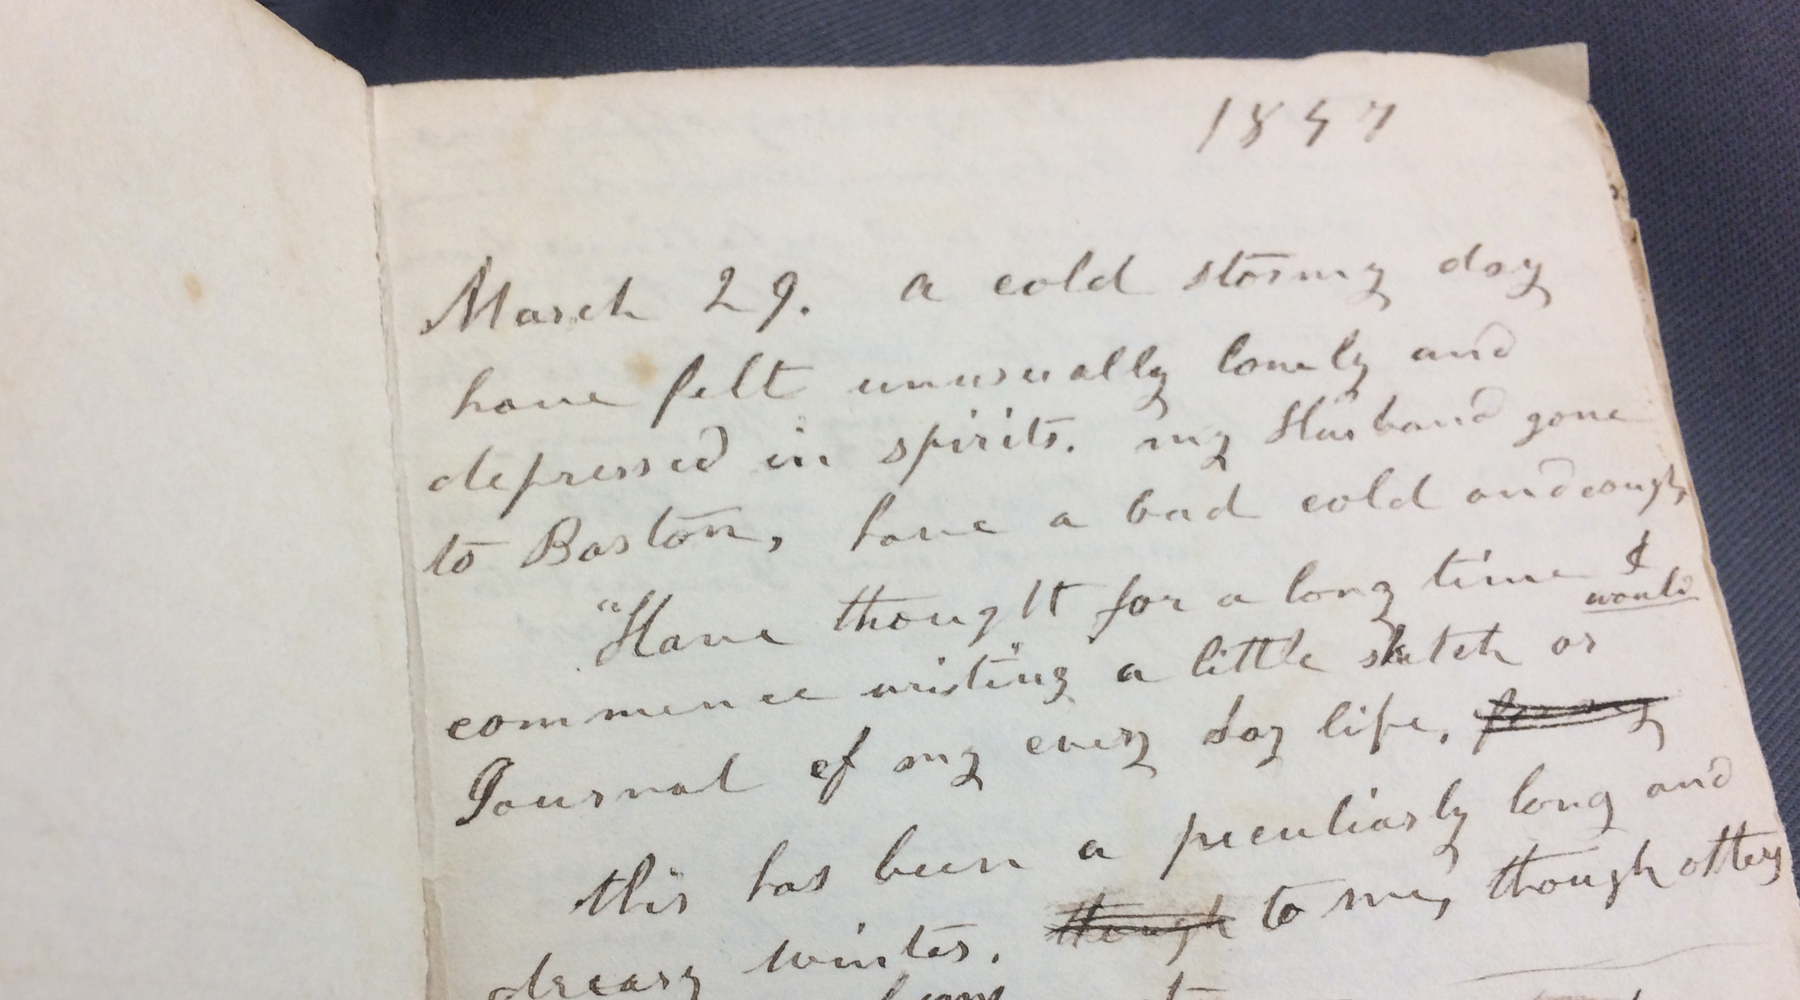 1857
March 29. a cold stormy day
have felt unusually lonely and
depressed in spirits. my Husband gone
to Boston, have a bad cold and cough
"Have thought for a long time I
would
commence writing a little sketch or
Journal of my every day life,
this has been a peculiarly long and
dreary winter. though to me, though others